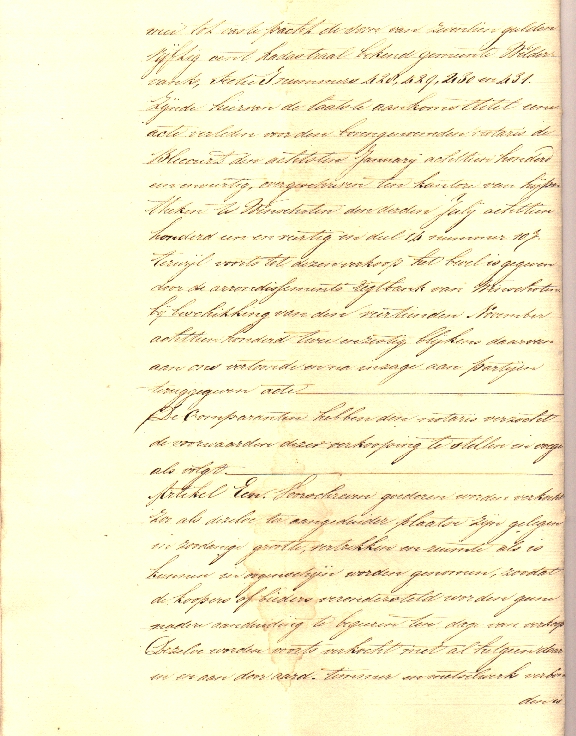 mei tot vaste pacht de som van zeventien gulden
vijftig cent kadastraal bekend gemeente Wilder
vank, Sectie J nummers 428, 429, 430 en 431.
zijnde hiervan de laatste aankomsttitel eene
acte verleden voor den bovengenoemden notaris de
Blecourt den achtsten January achttien honderd
een en veertig, overgeschreven ten kantore van hijpo
theken te Winschoten den derden July achttien
honderd een en veertig in deel 14 nummer 107.
terwijl voorts tot dezen verkoop het bevel is gegeven
door de arrondissements regtbank van Winschoten
bij beschikking van den veertienden November
achttien honderd twee en zestig blijkens daarvan
aan ons vertoonde en na inzage aan partijen
teruggegeven acte.
De Comparanten hebben den notaris verzocht
de voorwaarden dezer verkooping te stellen in orde
als volgt.
Artikel Een. Voorschreven goederen worden verkocht
zoo als dezelve ter aangeduider plaatse zijn gelegen
in zoodanige grootte, vertrekken en ruimte als is
kunnen in oogenschijn worden genomen, zoodat
de koopers of bieders verondersteld worden geen
nadere aanduiding te begeeren ten dage van verkoop
Dezelve worden voorts verkocht met al hetgeen daar
in en aan door aard- timmer en metselwerk verbon
den is